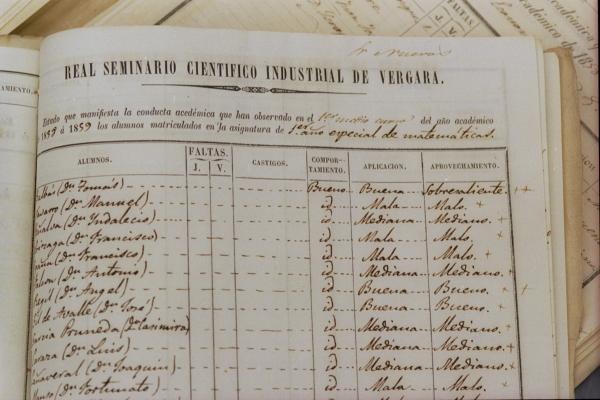 REAL SEMINARIO CIENTIFICO INDUSTRIAL DE VERGARA.
Estado que manifiesta la conducta académica que han observado en el 1er medio curso del año académico
1858 á 1859 los alumnos matriculados en la asignatura de 1er año especial de matemáticas.
ALUMNOS. FALTAS. CASTIGOS. COMPOR-TAMIENTO. APLICACION. APROVECHAMIENTO.
J. V.
(Dn Tomás) Bueno Buena Sobresaliente. ++
(Dn Manuel) id Mala Malo. +
(Dn Yndalecio) id Mediana Mediano. +
(Dn Francisco) id Mala Malo. +
(Dn Francisco) id Mala Malo. +
(Dn Antonio) id Mediana Mediano. +
(Dn Angel) id Buena Bueno. + +
Gil de Avalle (Dn José) id Buena Bueno. +
Garcia Pruneda (Dn Casimiro) id Mediana Mediano. +
(Dn Luis) id Mediana Mediano. +
Cañaveral (Dn Joaquin) id Mediana Mediano. +
Alonso (Dn Fortunato) id Mala Malo. +